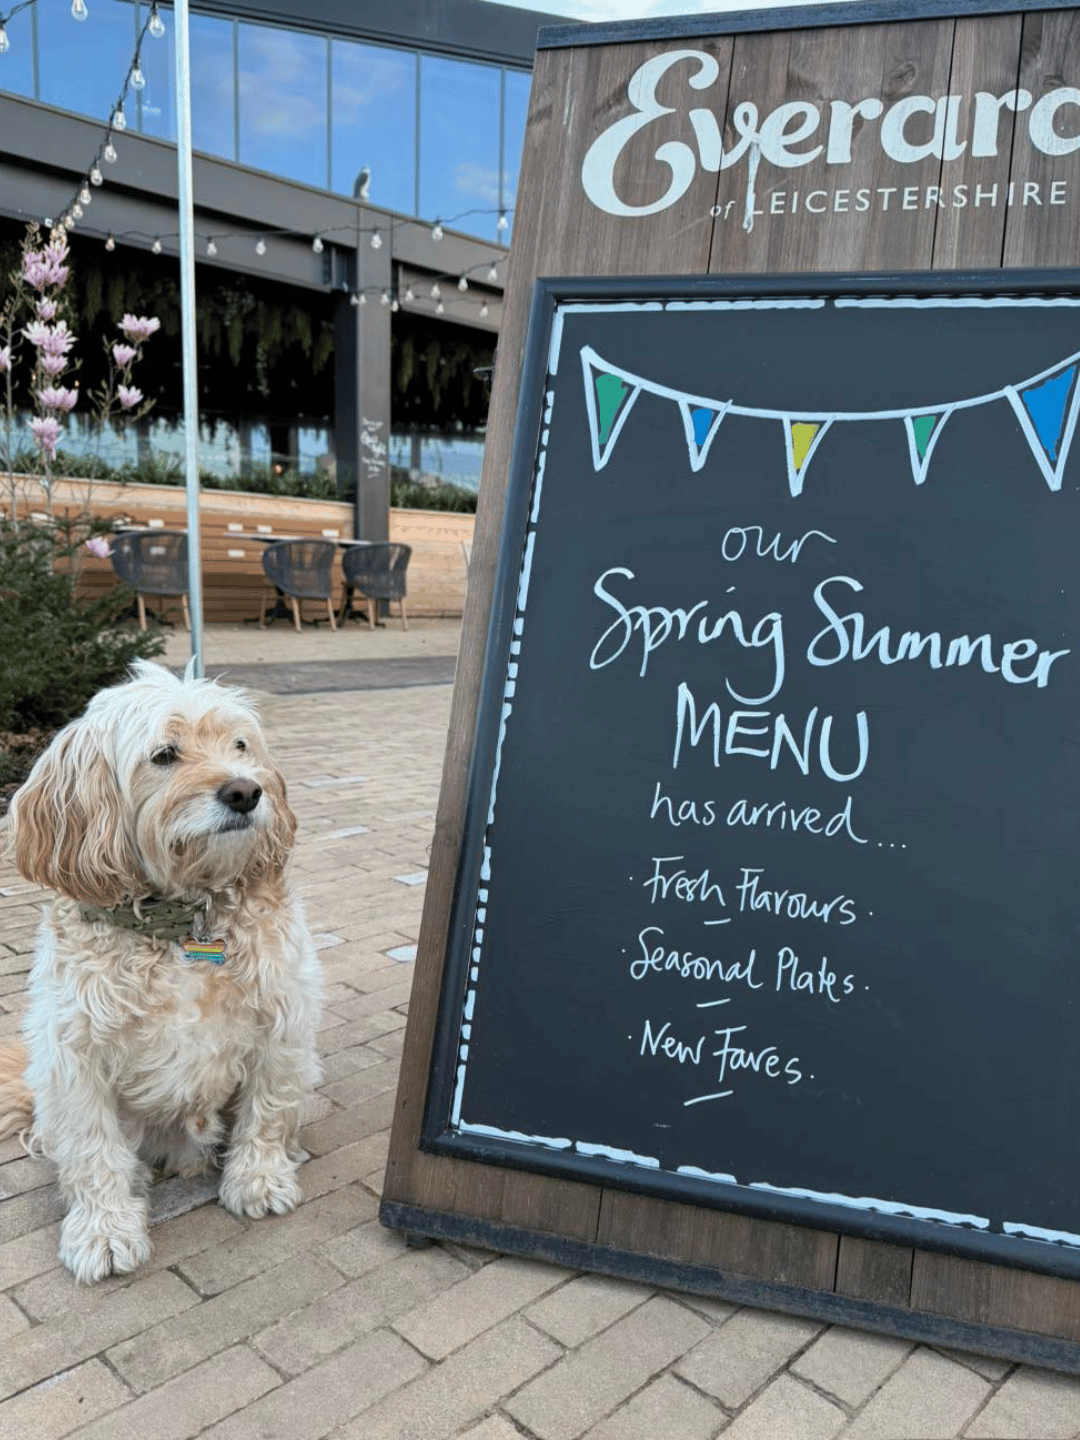 Everard
of LEICESTERSHIRE
our
Spring Summer
MENU
has arrived...
· Fresh Flavours ·
· Seasonal Plates ·
· New Faves ·